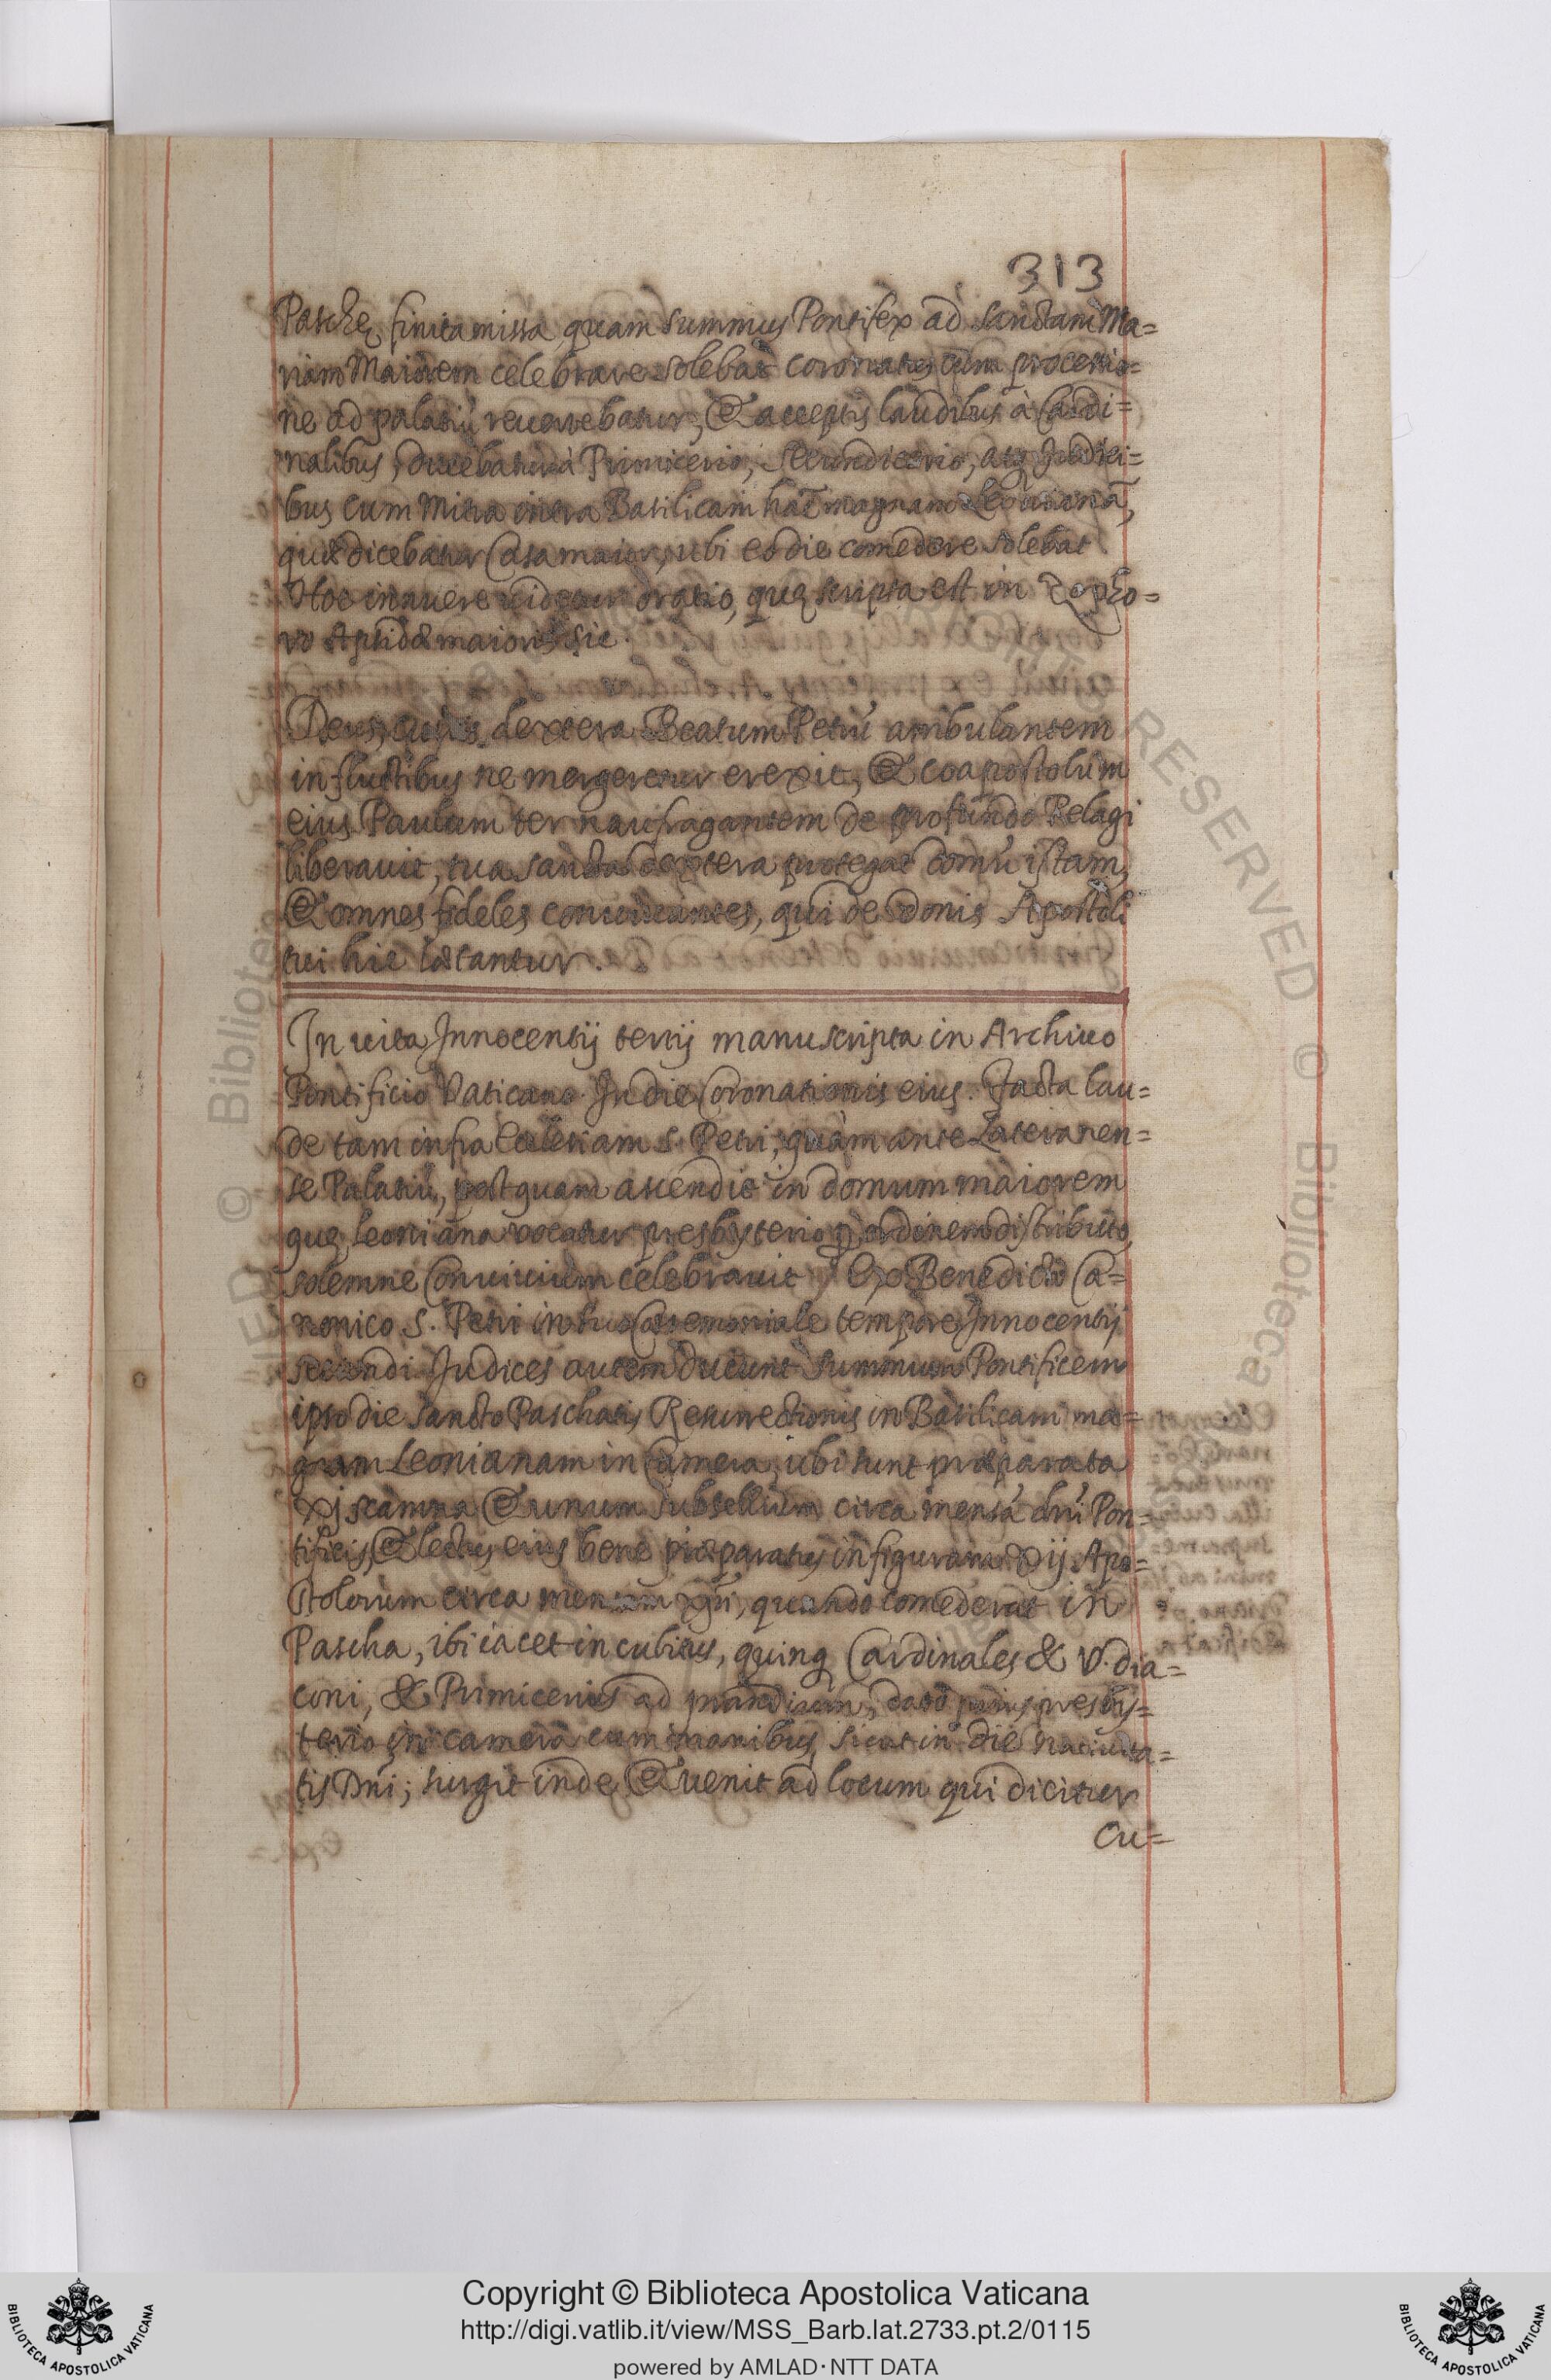 313
Paschę finita missa, quam summus Pontifex ad sanctam Ma=
riam Maiorem celebrare solebat coronatus cum processio=
ne ad palatiū reuertebatur, & acceptis laudibus à Cardi=
nalibus, ducebatur à Primicerio, Secundicerio, atq Iudici=
bus cum Mitra intra Basilicam hāc magnam Leoninianā,
quæ dicebatur Casa maior, ubi eo die comedere solebat.
Hoc innuere uidetur oratio, quę scripta est in Zopho=
ro Apsidæ maioris sic.
Deus, cuius dextera Beatum Petrū ambulantem
in fluctibus ne mergeretur erexit, & coapostolum
eius Paulum ter naufragantem de profundo Pelagi
liberauit, tua sancta dextera protegat domū istam,
& omnes fideles conuiuantes, qui de donis Apostoli
tui hic lætantur.
In uita Innocentij tertij manuscripta in Archiuo
Pontificio Vaticano. In die Coronationis eius. Facta lau=
de tam infra Ecclesiam S. Petri, quàm ante Lateranen=
se Palatiū, postquam ascendit in domum maiorem
quę leoniana vocatur presbyterio p ordinem distributo,
solemne Conuiuium celebrauit. Ex Benedicto Ca=
nonico S. Petri in suo Cæremoniale tempore Innocentij
secundi. Iudices autem ducunt summum Pontificem
ipso die sancto Paschatis Resurrectionis in Basilicam ma=
gnam Leonianam in Camera, ubi sunt præparata
xj scamna & unum subsellium circa mensā dn̄i Pon=
tificis, & lectus eius bene præparatus in figuram xij Apo=
stolorum circa mensam x̄p̄i, quando comederat in
Pascha, ibi iacet in cubitus, quinq Cardinales & V. dia=
coni, & Primicerius ad prandium, dato prius presby=
terio in camera cum manibus, sicut in die natiuita=
tis Dn̄i; surgit inde & uenit ad locum qui dicitur
Cu=
Copyright © Biblioteca Apostolica Vaticana
http://digi.vatlib.it/view/MSS_Barb.lat.2733.pt.2/0115
powered by AMLAD·NTT DATA
BIBLIOTECA APOSTOLICA VATICANA
BIBLIOTECA APOSTOLICA VATICANA